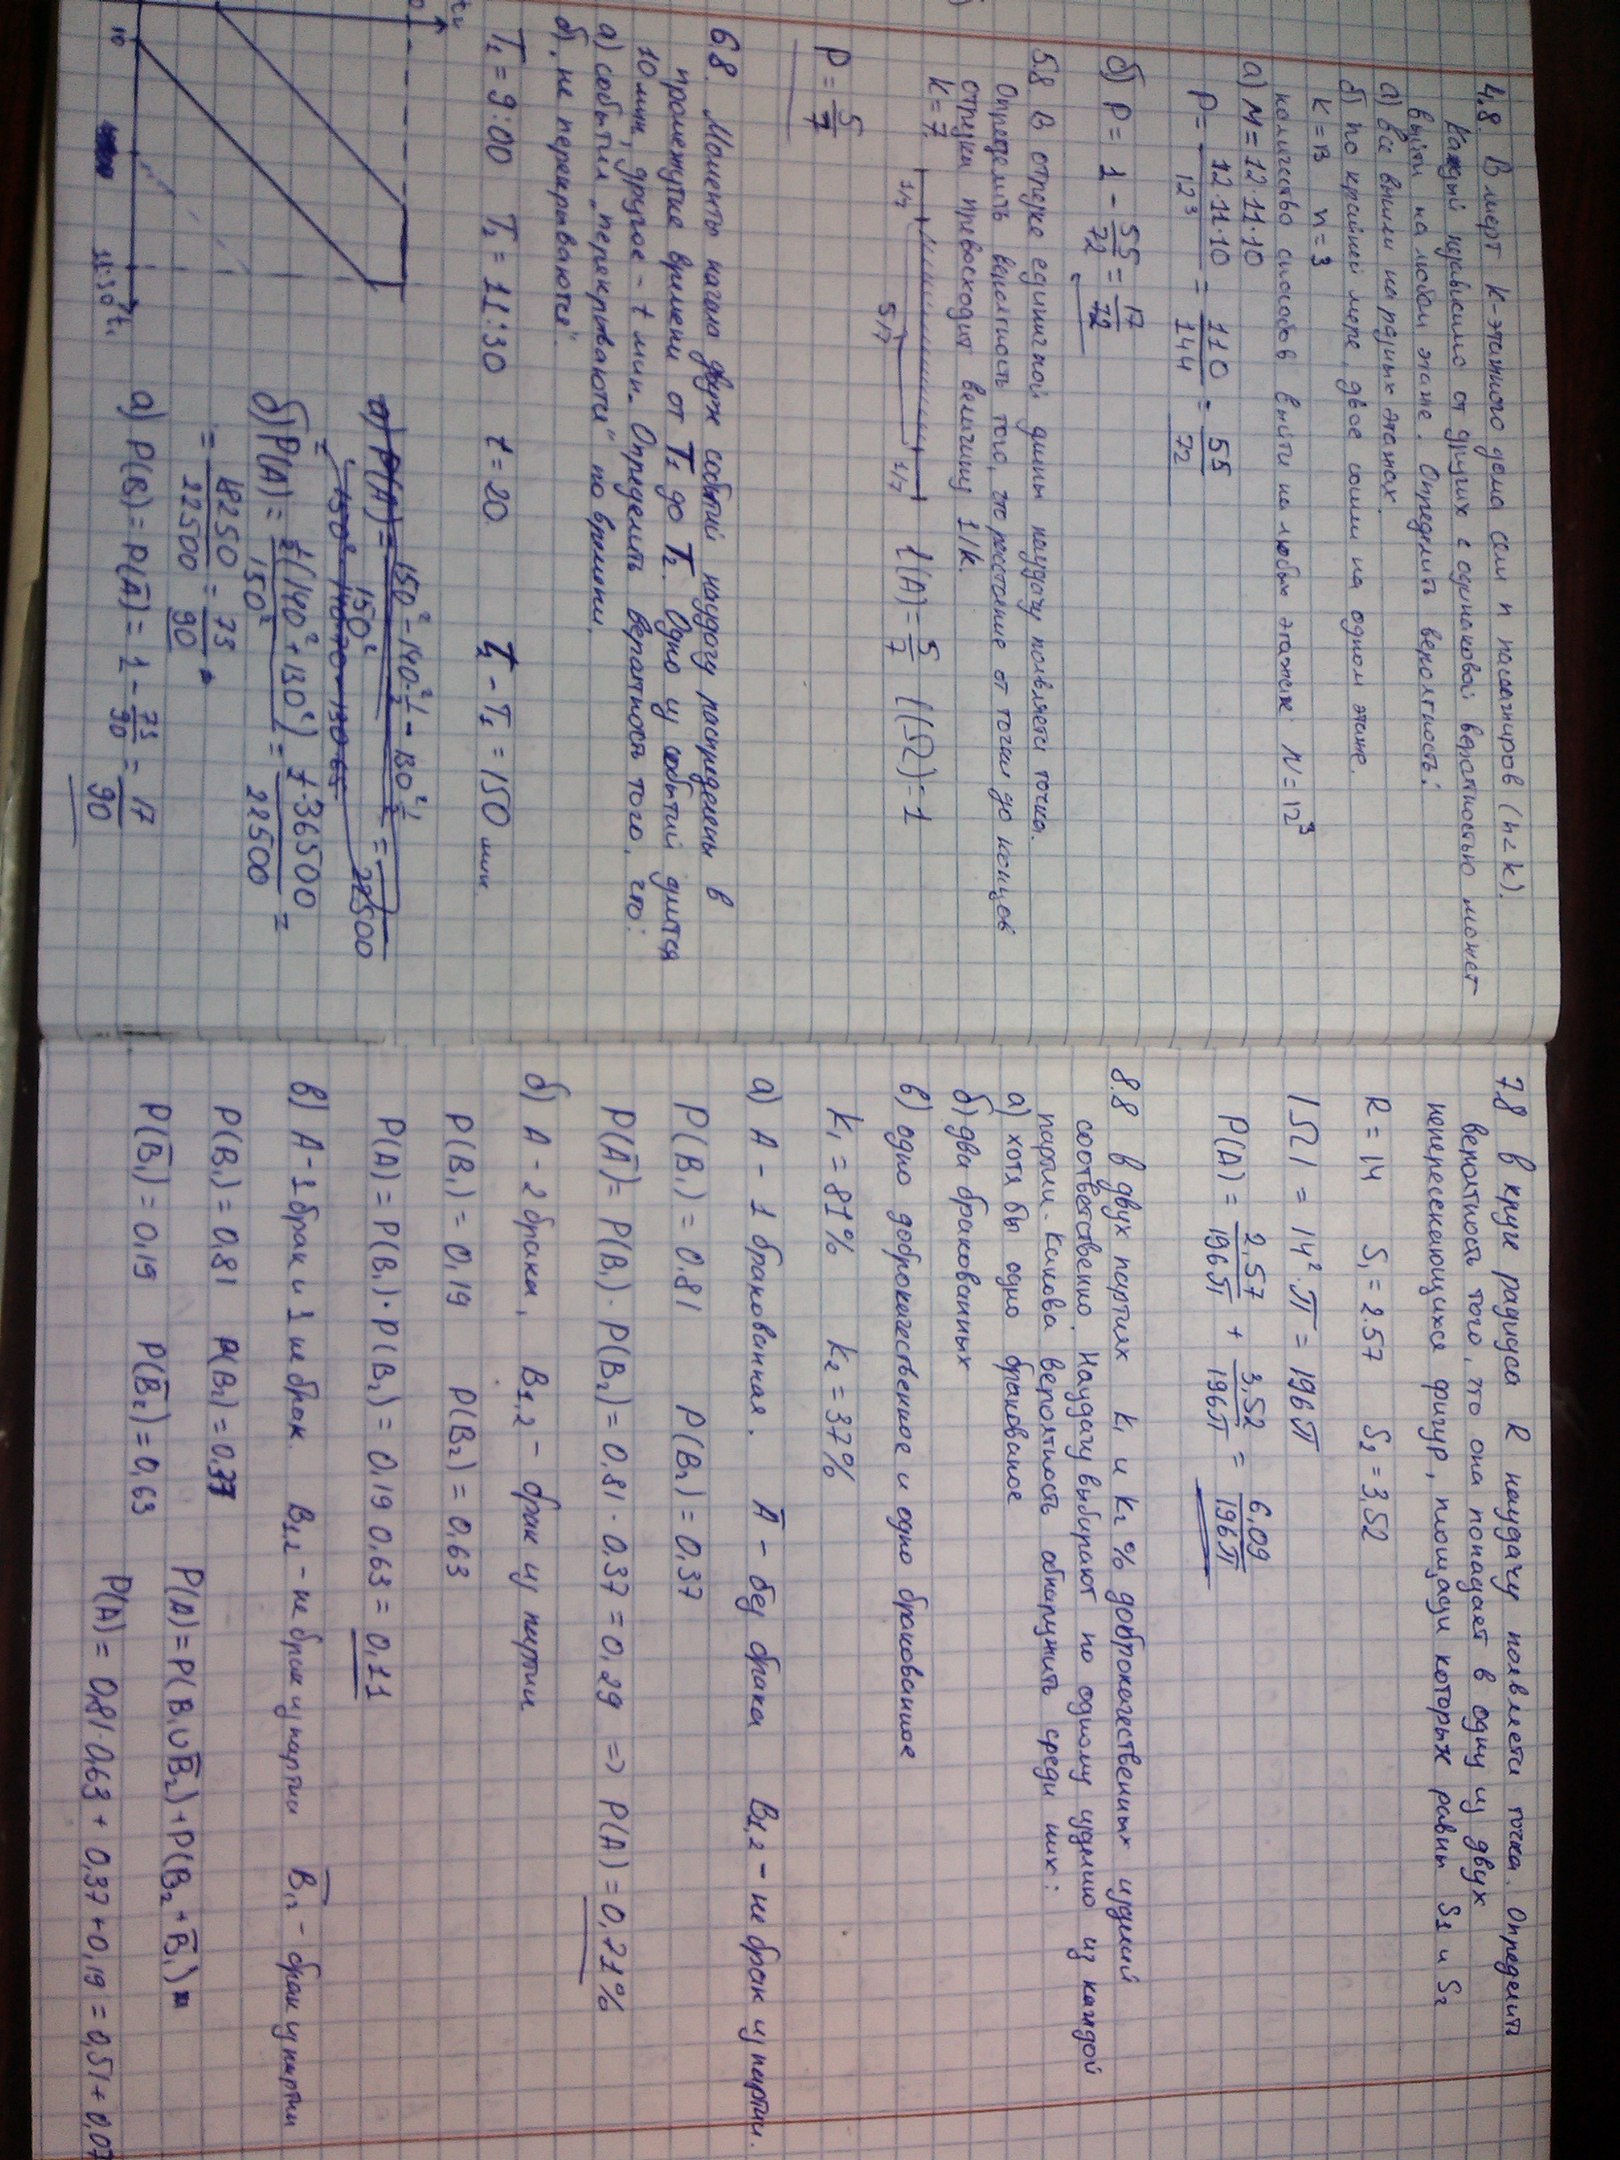 4.8. В лифт К-этажного дома сели n пассажиров (n<k).
Каждый независимо от других с одинаковой вероятностью может
выйти на любом этаже. Определить вероятность:
а) все вышли на разных этажах.
б) по крайней мере, двое сошли на одном этаже.
К = 13 n = 3
количество способов выйти на любых этажах: N = 12³
а) M = 12·11·10
P = 12·11·10 / 12³ = 110/144 = 55/72
б) P = 1 - 55/72 = 17/72
5.8 В отрезке единичной длины наудачу появляется точка.
Определить вероятность того, что расстояние от точки до концов
отрезка превосходит величину 1/k.
K = 7.
1/7 5/7 1/7 l(A) = 5/7 l(Ω) = 1
P = 5/7
6.8. Моменты начала двух событий наудачу распределены в
промежутке времени от T₁ до T₂. Одно из событий длится
10 мин, другое - t мин. Определить вероятность того, что:
а) события „перекрываются" по времени.
б) „не перекрываются".
T₁ = 9:00 T₂ = 11:30 t = 20 T₂ - T₁ = 150 мин.
10 11:30 t₁
а) P(A) = 150² - 140²·½ - 130²·½ / 150² = / 22500
= 150² - 140·70 - 130·65
б) P(A) = ½(140² + 130²) / 150² = ½·36500 / 22500 =
= 18250/22500 = 73/90
а) P(B) = P(A̅) = 1 - 73/90 = 17/90
7.8 В круге радиуса R наудачу появляется точка. Определить
вероятность того, что она попадает в одну из двух
непересекающихся фигур, площади которых равны S1 и S2
R = 14 S₁ = 2.57 S₂ = 3,52
|Ω| = 14²·π = 196π
P(A) = 2,57/196π + 3,52/196π = 6,09/196π
8.8 В двух партиях k₁ и k₂ % доброкачественных изделий
соответственно. Наудачу выбирают по одному изделию из каждой
партии. Какова вероятность обнаружить среди них:
а) хотя бы одно бракованое
б) два бракованных
в) одно доброкачественное и одно бракованное
k₁ = 81% k₂ = 37%
а) A - 1 бракованная. A̅ - без брака B1,2 - не брак из партии.
P(B₁) = 0.81 P(B₂) = 0,37
P(A̅) = P(B₁)·P(B₂) = 0,81·0,37 = 0,29 => P(A) = 0,71%
б) A - 2 брака, B1,2 - брак из партии
P(B₁) = 0,19 P(B₂) = 0,63
P(A) = P(B₁)·P(B₂) = 0,19 0,63 = 0,11
в) A - 1 брак и 1 не брак. B1,2 - не брак из партии B̅1,2 - брак из партии
P(B₁) = 0,81 P(B₂) = 0,37
P(B̅₁) = 0,19 P(B̅₂) = 0,63
P(A) = P(B₁∪B̅₂) + P(B₂+B̅₁)
P(A) = 0,81·0,63 + 0,37+0,19 = 0,51+0,07